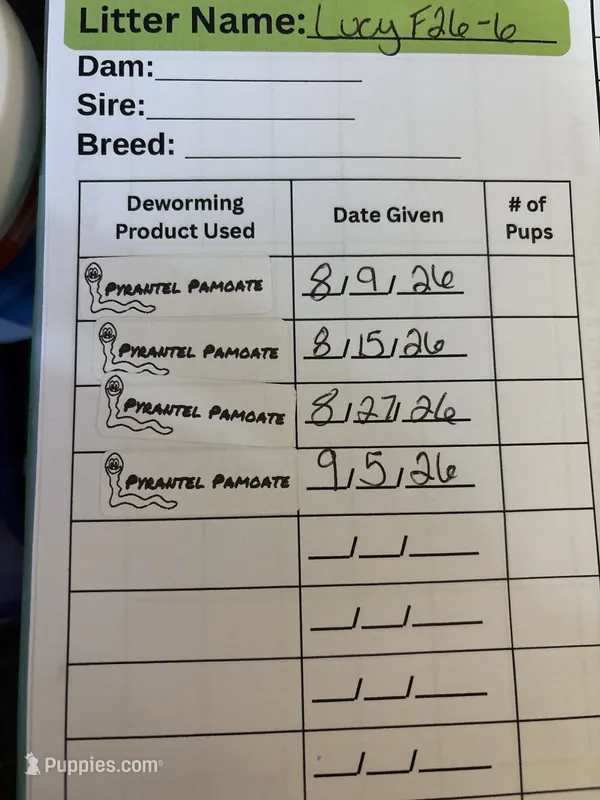 Litter Name: Lucy F26-6
Dam:
Sire:
Breed:
Deworming Product Used Date Given # of Pups
Pyrantel Pamoate 8/9/26
Pyrantel Pamoate 8/15/26
Pyrantel Pamoate 8/27/26
Pyrantel Pamoate 9/5/26
Puppies.com